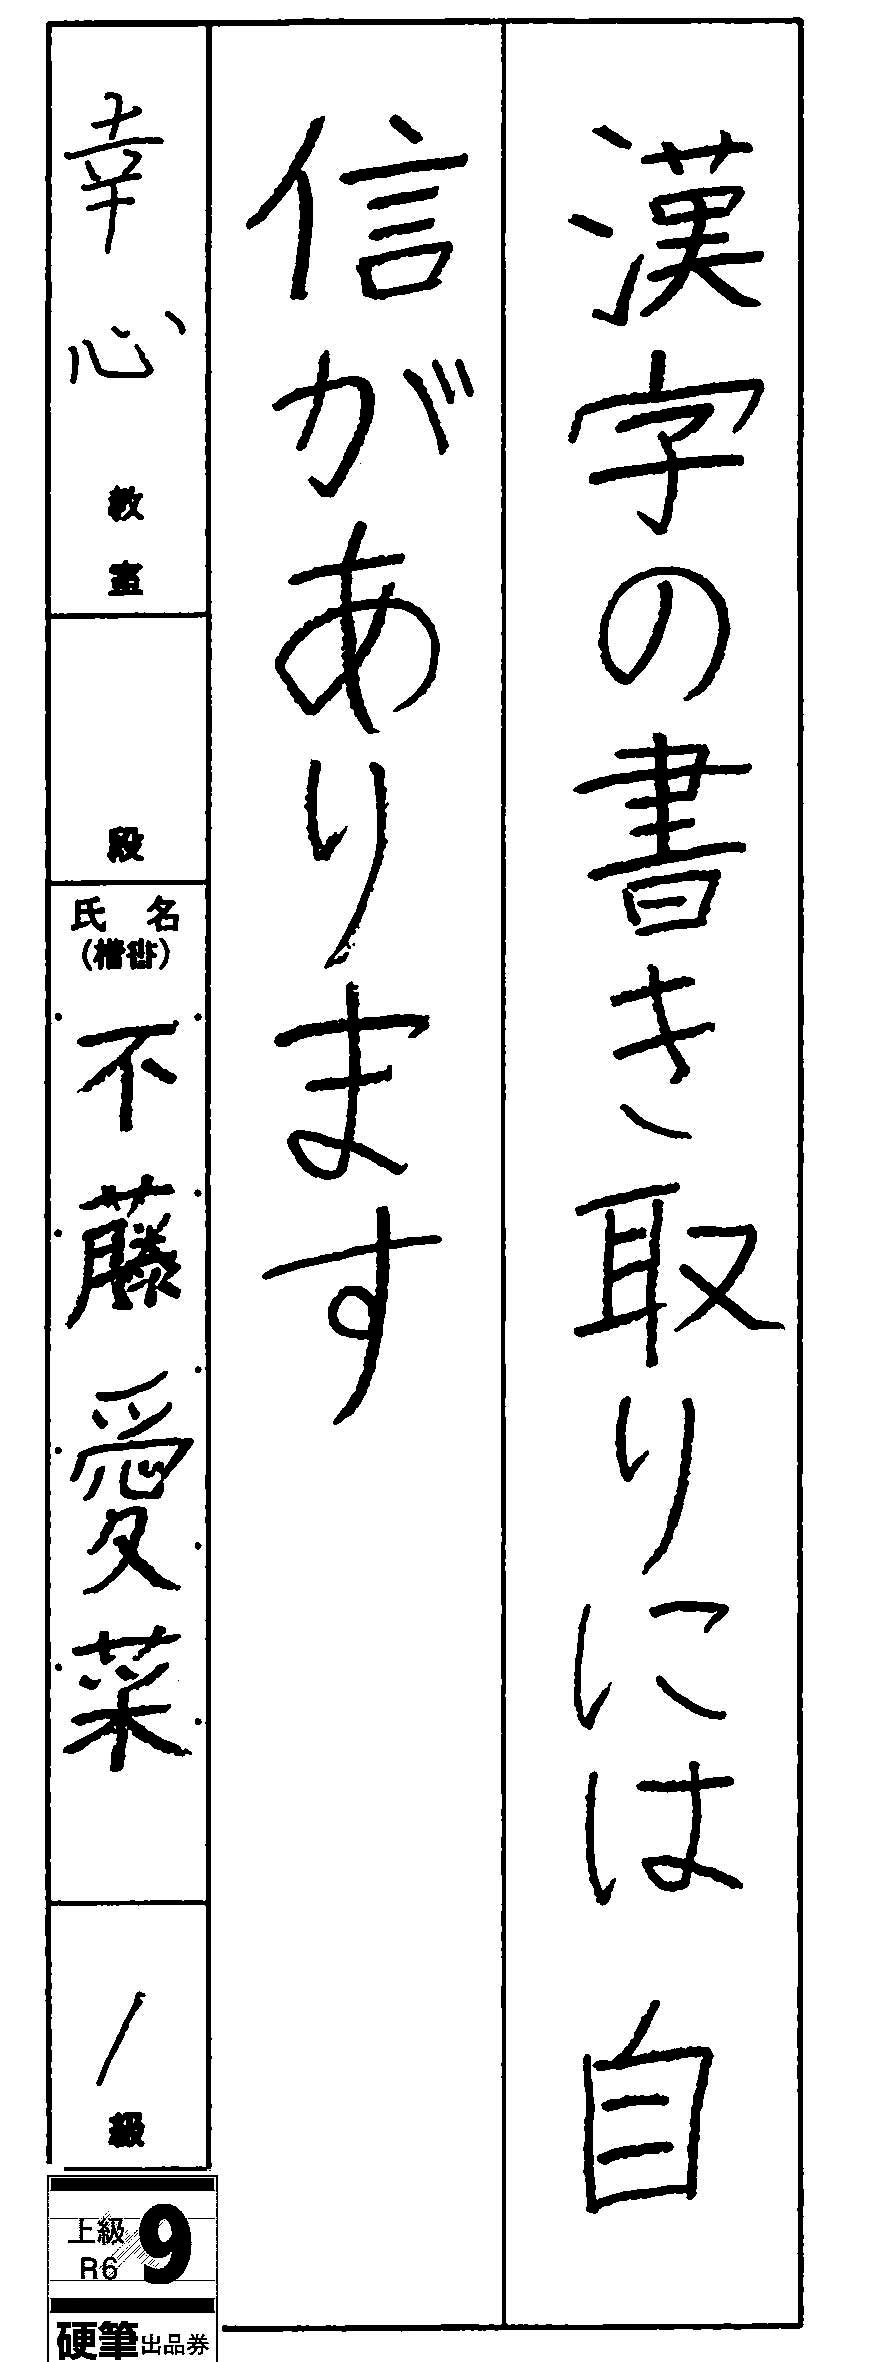 漢字の書き取りには自
信があります
幸心教室
段
氏名
(楷書)
不藤愛菜
1級
上級
R6
9
硬筆出品券